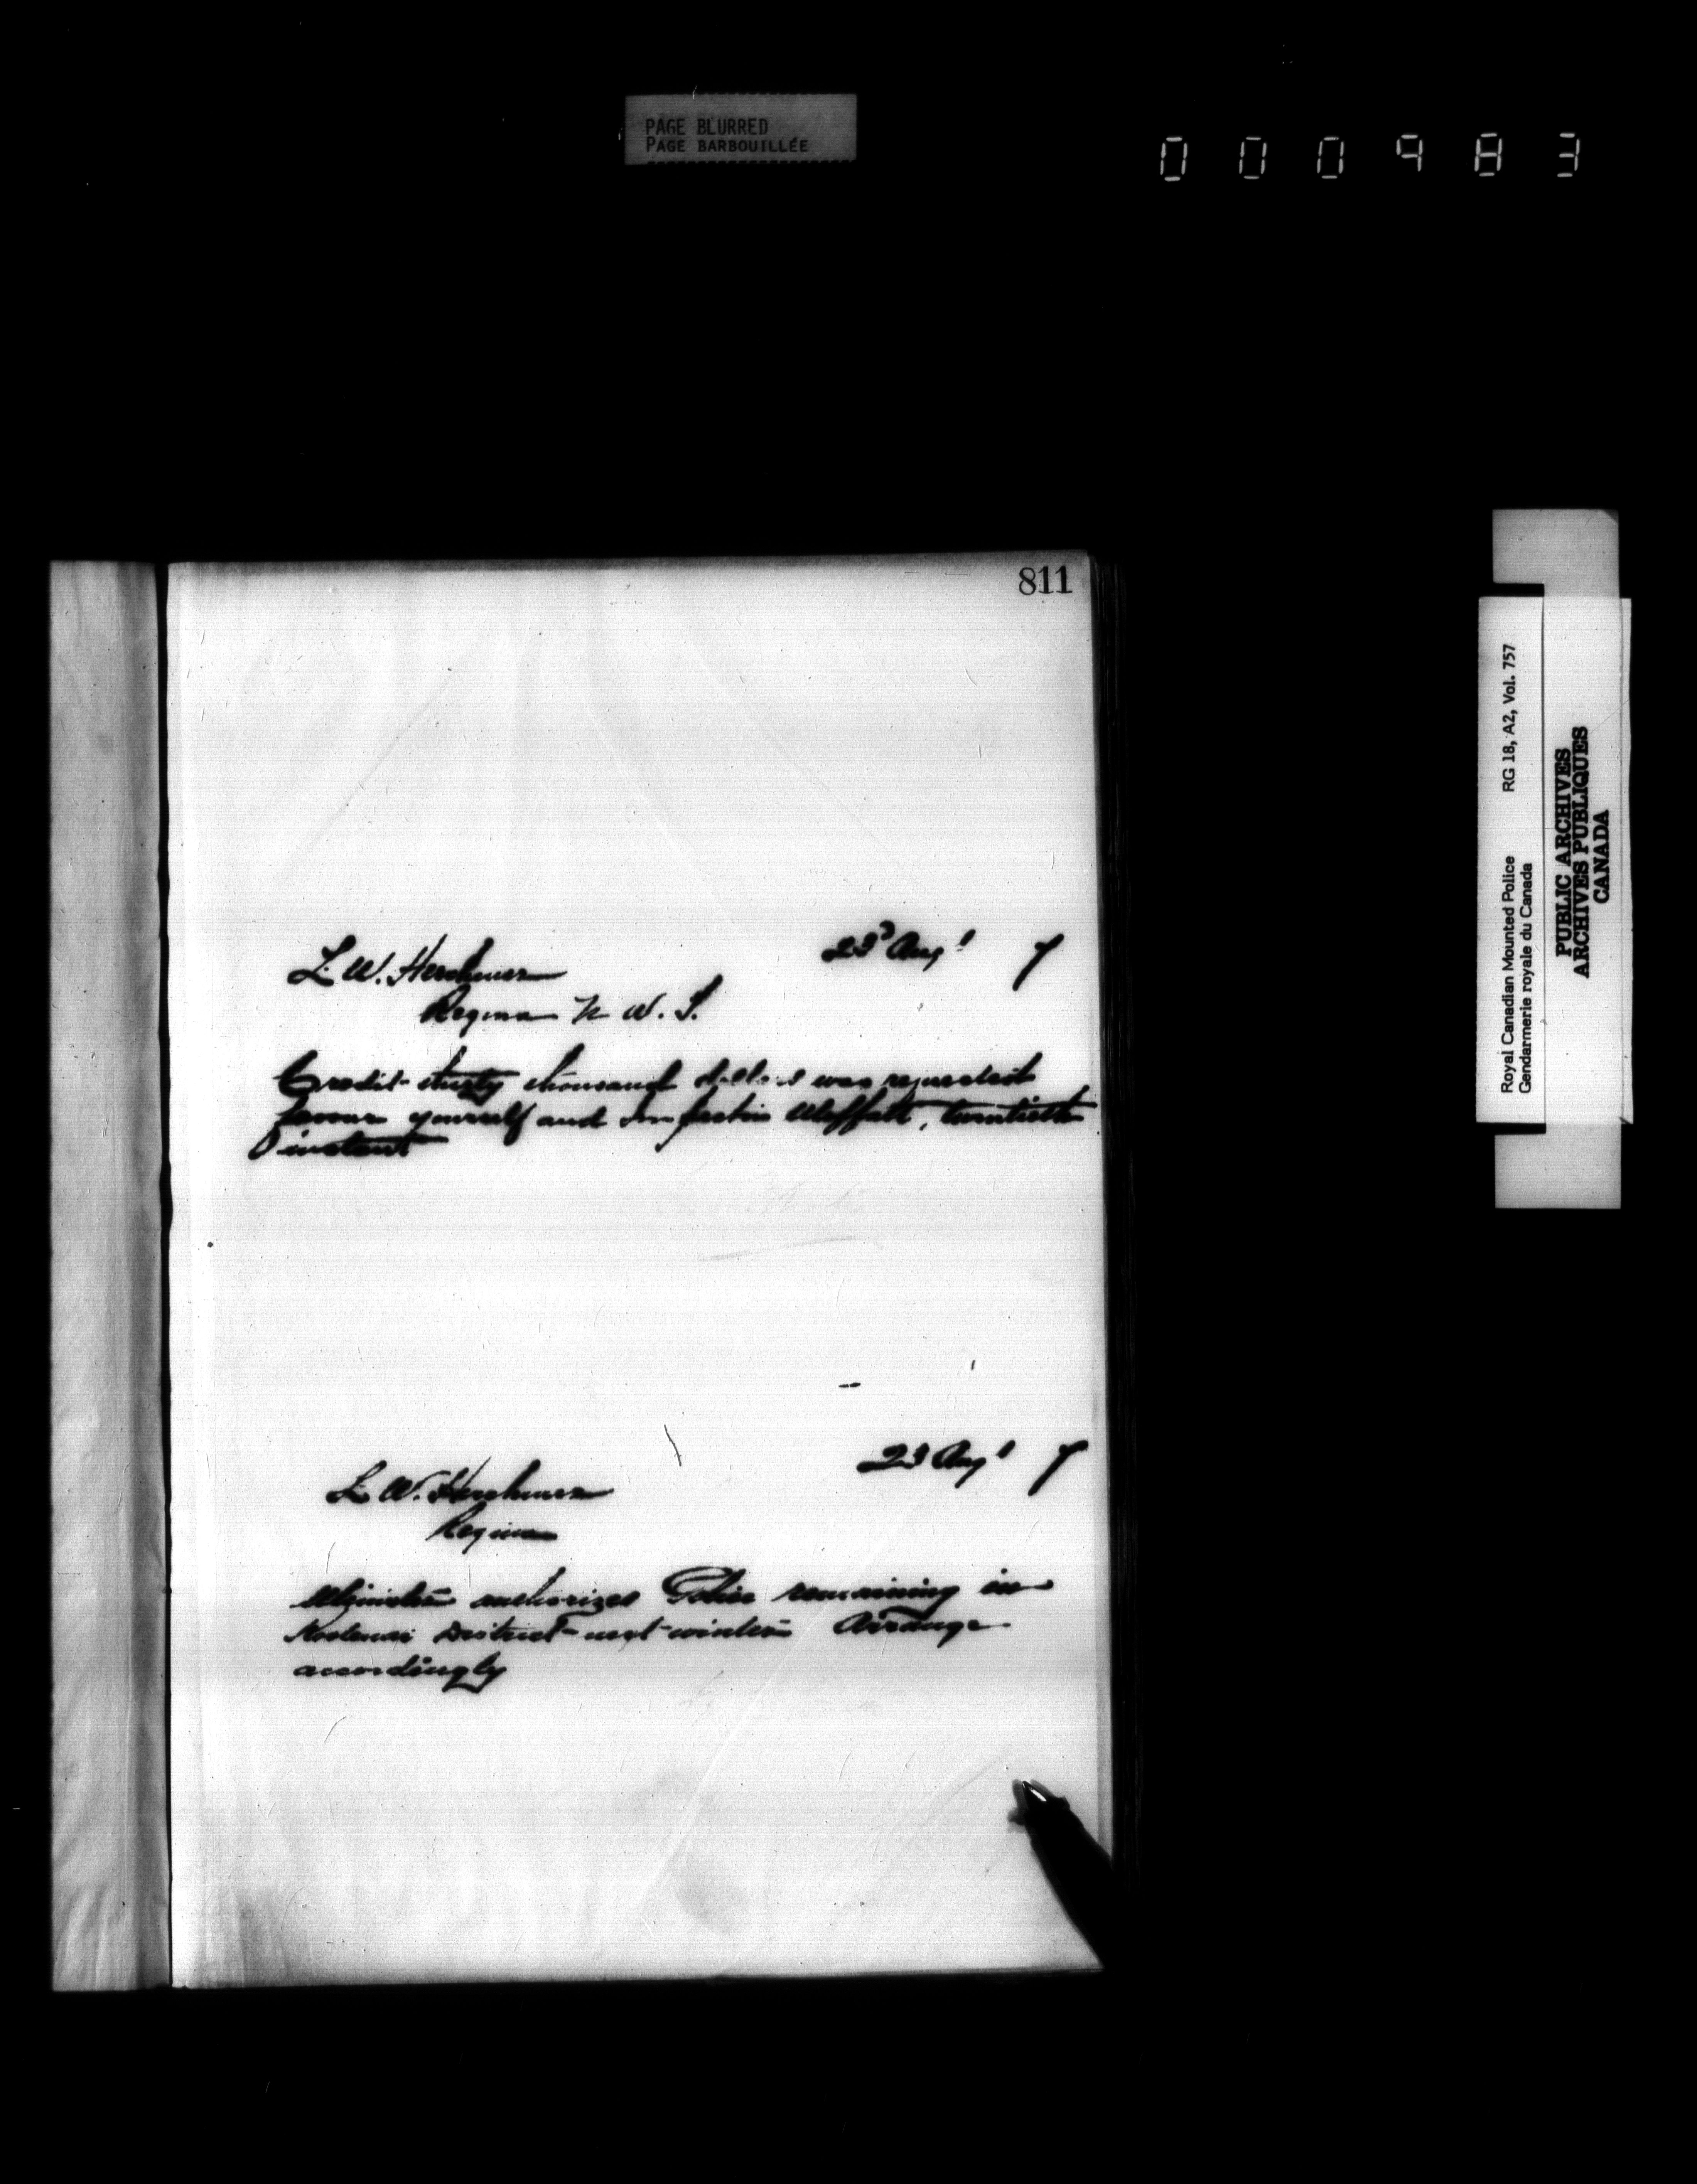 PAGE BLURRED
PAGE BARBOUILLÉE
000983
811
23d Augt 7
L. W. Herchmer
Regina N. W. T.
Credit thirty thousand dollars was requested
favour yourself and Inspector Moffatt, twentieth
instant
23 Augt 7
L. W. Herchmer
Regina
Minister authorizes Police remaining in
Kootenai District next winter Arrange
accordingly
Royal Canadian Mounted Police RG 18, A2, Vol. 757
Gendarmerie royale du Canada
PUBLIC ARCHIVES
ARCHIVES PUBLIQUES
CANADA